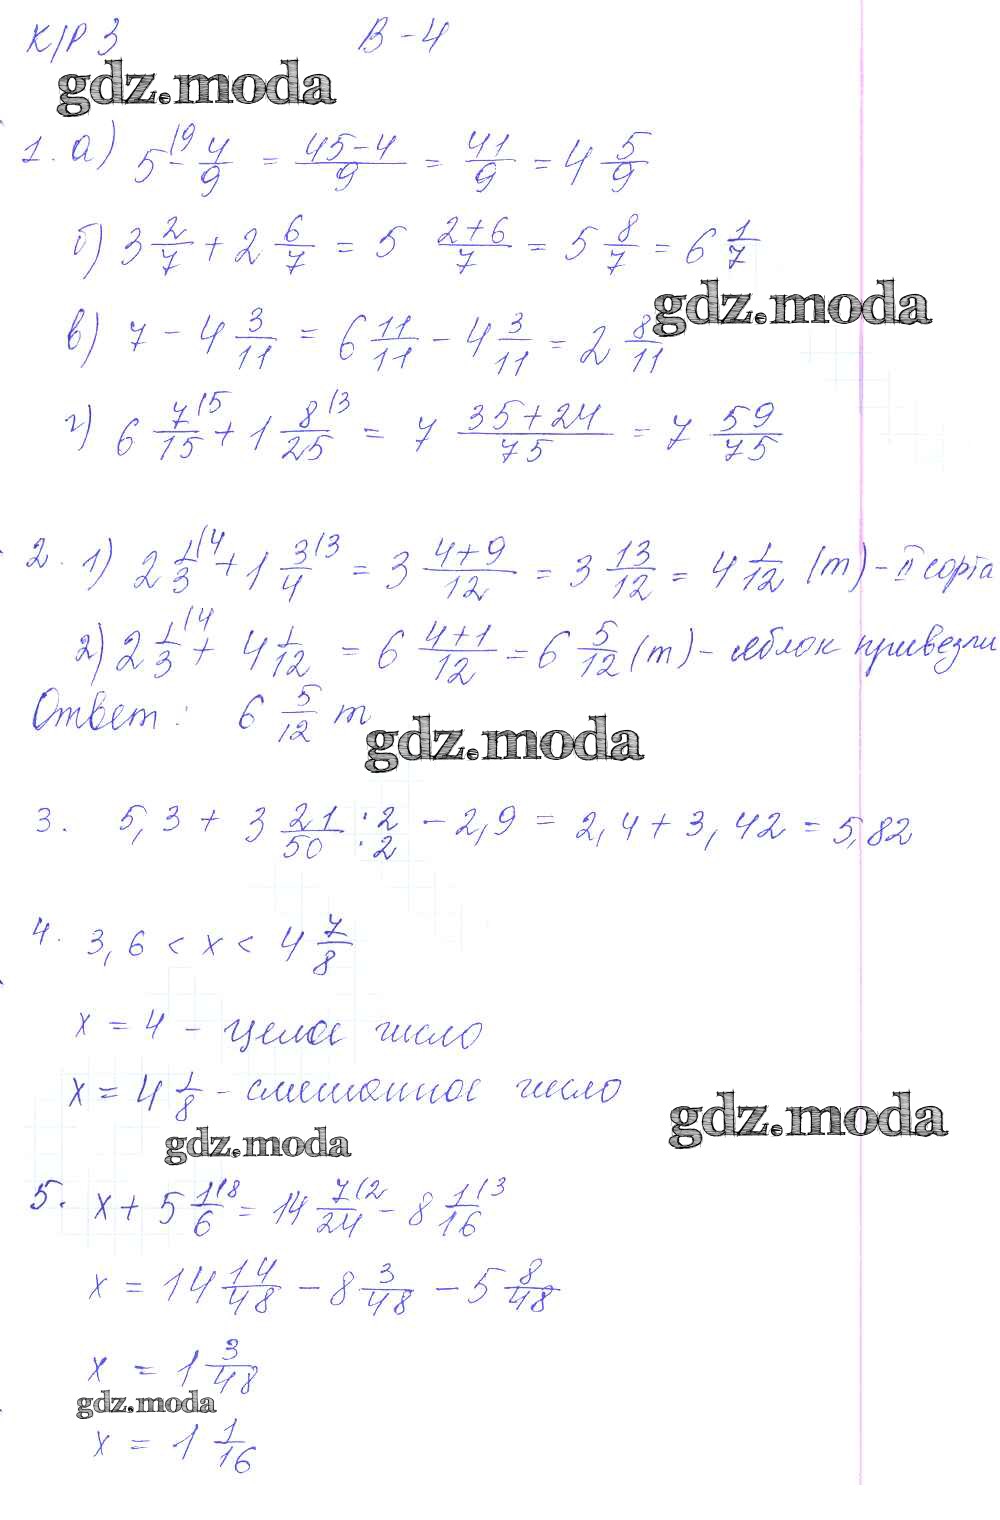 К/Р 3 В-4
gdz.moda
1. а) 5 - 4/9 (9 = 45-4/9 = 41/9 = 4 5/9
б) 3 2/7 + 2 6/7 = 5 2+6/7 = 5 8/7 = 6 1/7
gdz.moda
в) 7 - 4 3/11 = 6 11/11 - 4 3/11 = 2 8/11
г) 6 7/15 (5 + 1 8/25 (3 = 7 35+24/75 = 7 59/75
2. 1) 2 1/3 (4 + 1 3/4 (3 = 3 4+9/12 = 3 13/12 = 4 1/12 (т) - II сорта
2) 2 1/3 (4 + 4 1/12 = 6 4+1/12 = 6 5/12 (т) - яблок привезли
Ответ: 6 5/12 т
gdz.moda
3. 5,3 + 3 21/50 ·2/·2 - 2,9 = 2,4 + 3,42 = 5,82
4. 3,6 < x < 4 7/8
x = 4 - целое число
x = 4 1/8 - смешанное число
gdz.moda
gdz.moda
5. x + 5 1/6 (8 = 14 7/24 (2 - 8 1/16 (3
x = 14 14/48 - 8 3/48 - 5 8/48
x = 1 3/48
gdz.moda
x = 1 1/16